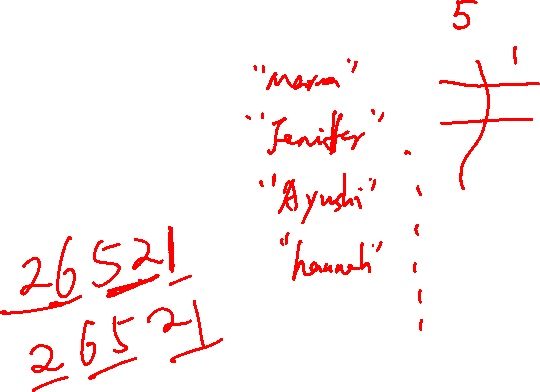 5
1
"Jenifer"
"Ayushi"
"hannah"
26521
26521